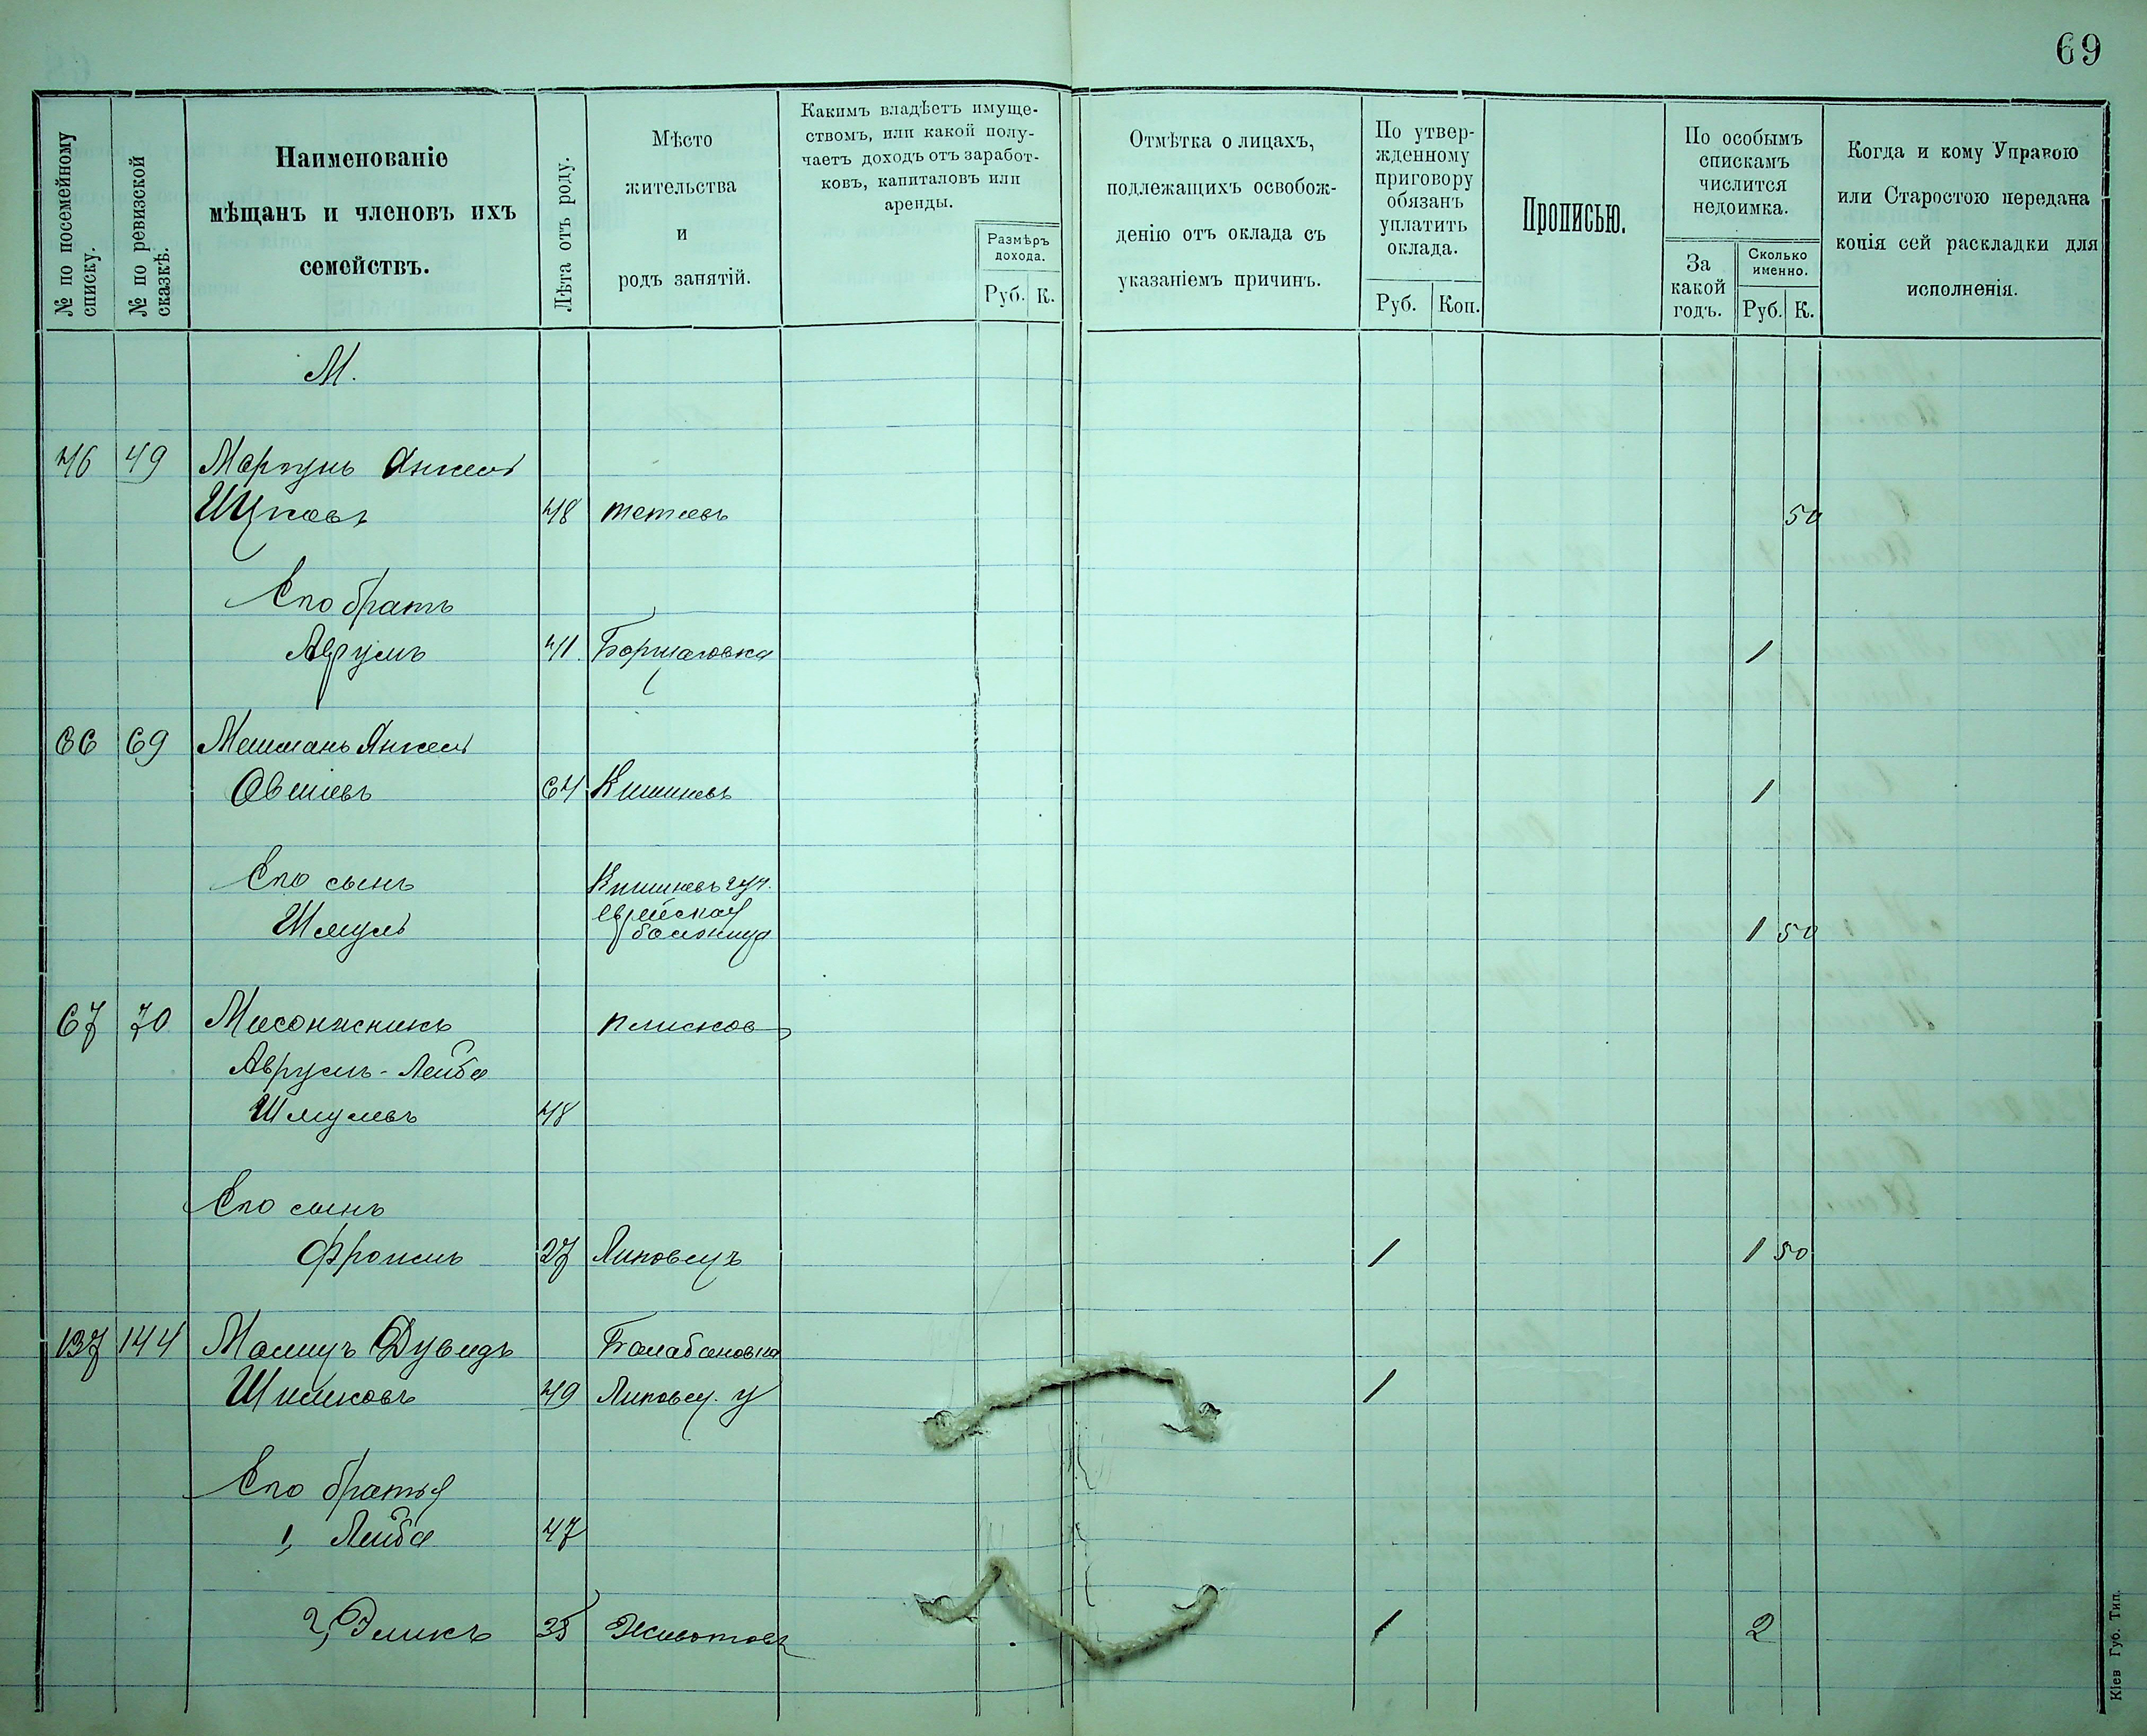 69
№ по посемейному списку.
№ по ревизской сказкѣ.
Наименованіе
мѣщанъ и членовъ ихъ
семействъ.
Лѣта отъ роду.
Мѣсто
жительства
и
родъ занятій.
Какимъ владѣетъ имуще-
ствомъ, или какой полу-
чаетъ доходъ отъ заработ-
ковъ, капиталовъ или
аренды.
Размѣръ
дохода.
Руб. К.
Отмѣтка о лицахъ,
подлежащихъ освобож-
денію отъ оклада съ
указаніемъ причинъ.
По утвер-
жденному
приговору
обязанъ
уплатить
оклада.
Руб. Коп.
Прописью.
По особымъ
спискамъ
числится
недоимка.
За
какой
годъ.
Сколько
именно.
Руб. К.
Когда и кому Управою
или Старостою передана
копія сей раскладки для
исполненія.
М.
46 49 Маргунъ Янкель
Ицковъ 48 тетіевъ 50
Его братъ
Аврумъ 41 Борщаговка 1
66 69 Янкель
Овшіевъ 64 Кишиневъ 1
Его сынъ Кишиневъ
Шмуль Еврейская
больница 1 50
67 70 Плисковъ
Аврумъ-Лейба
Шмулевъ 48
Его сынъ
Фроимъ 27 Липовец 1 1 50
137 144 Дувидъ Балабановка
49 Липовец. у 1
Его братья
1, Лейба 47
2, Эликъ 35 Животовъ 1 2
Кіев Губ. Тип.